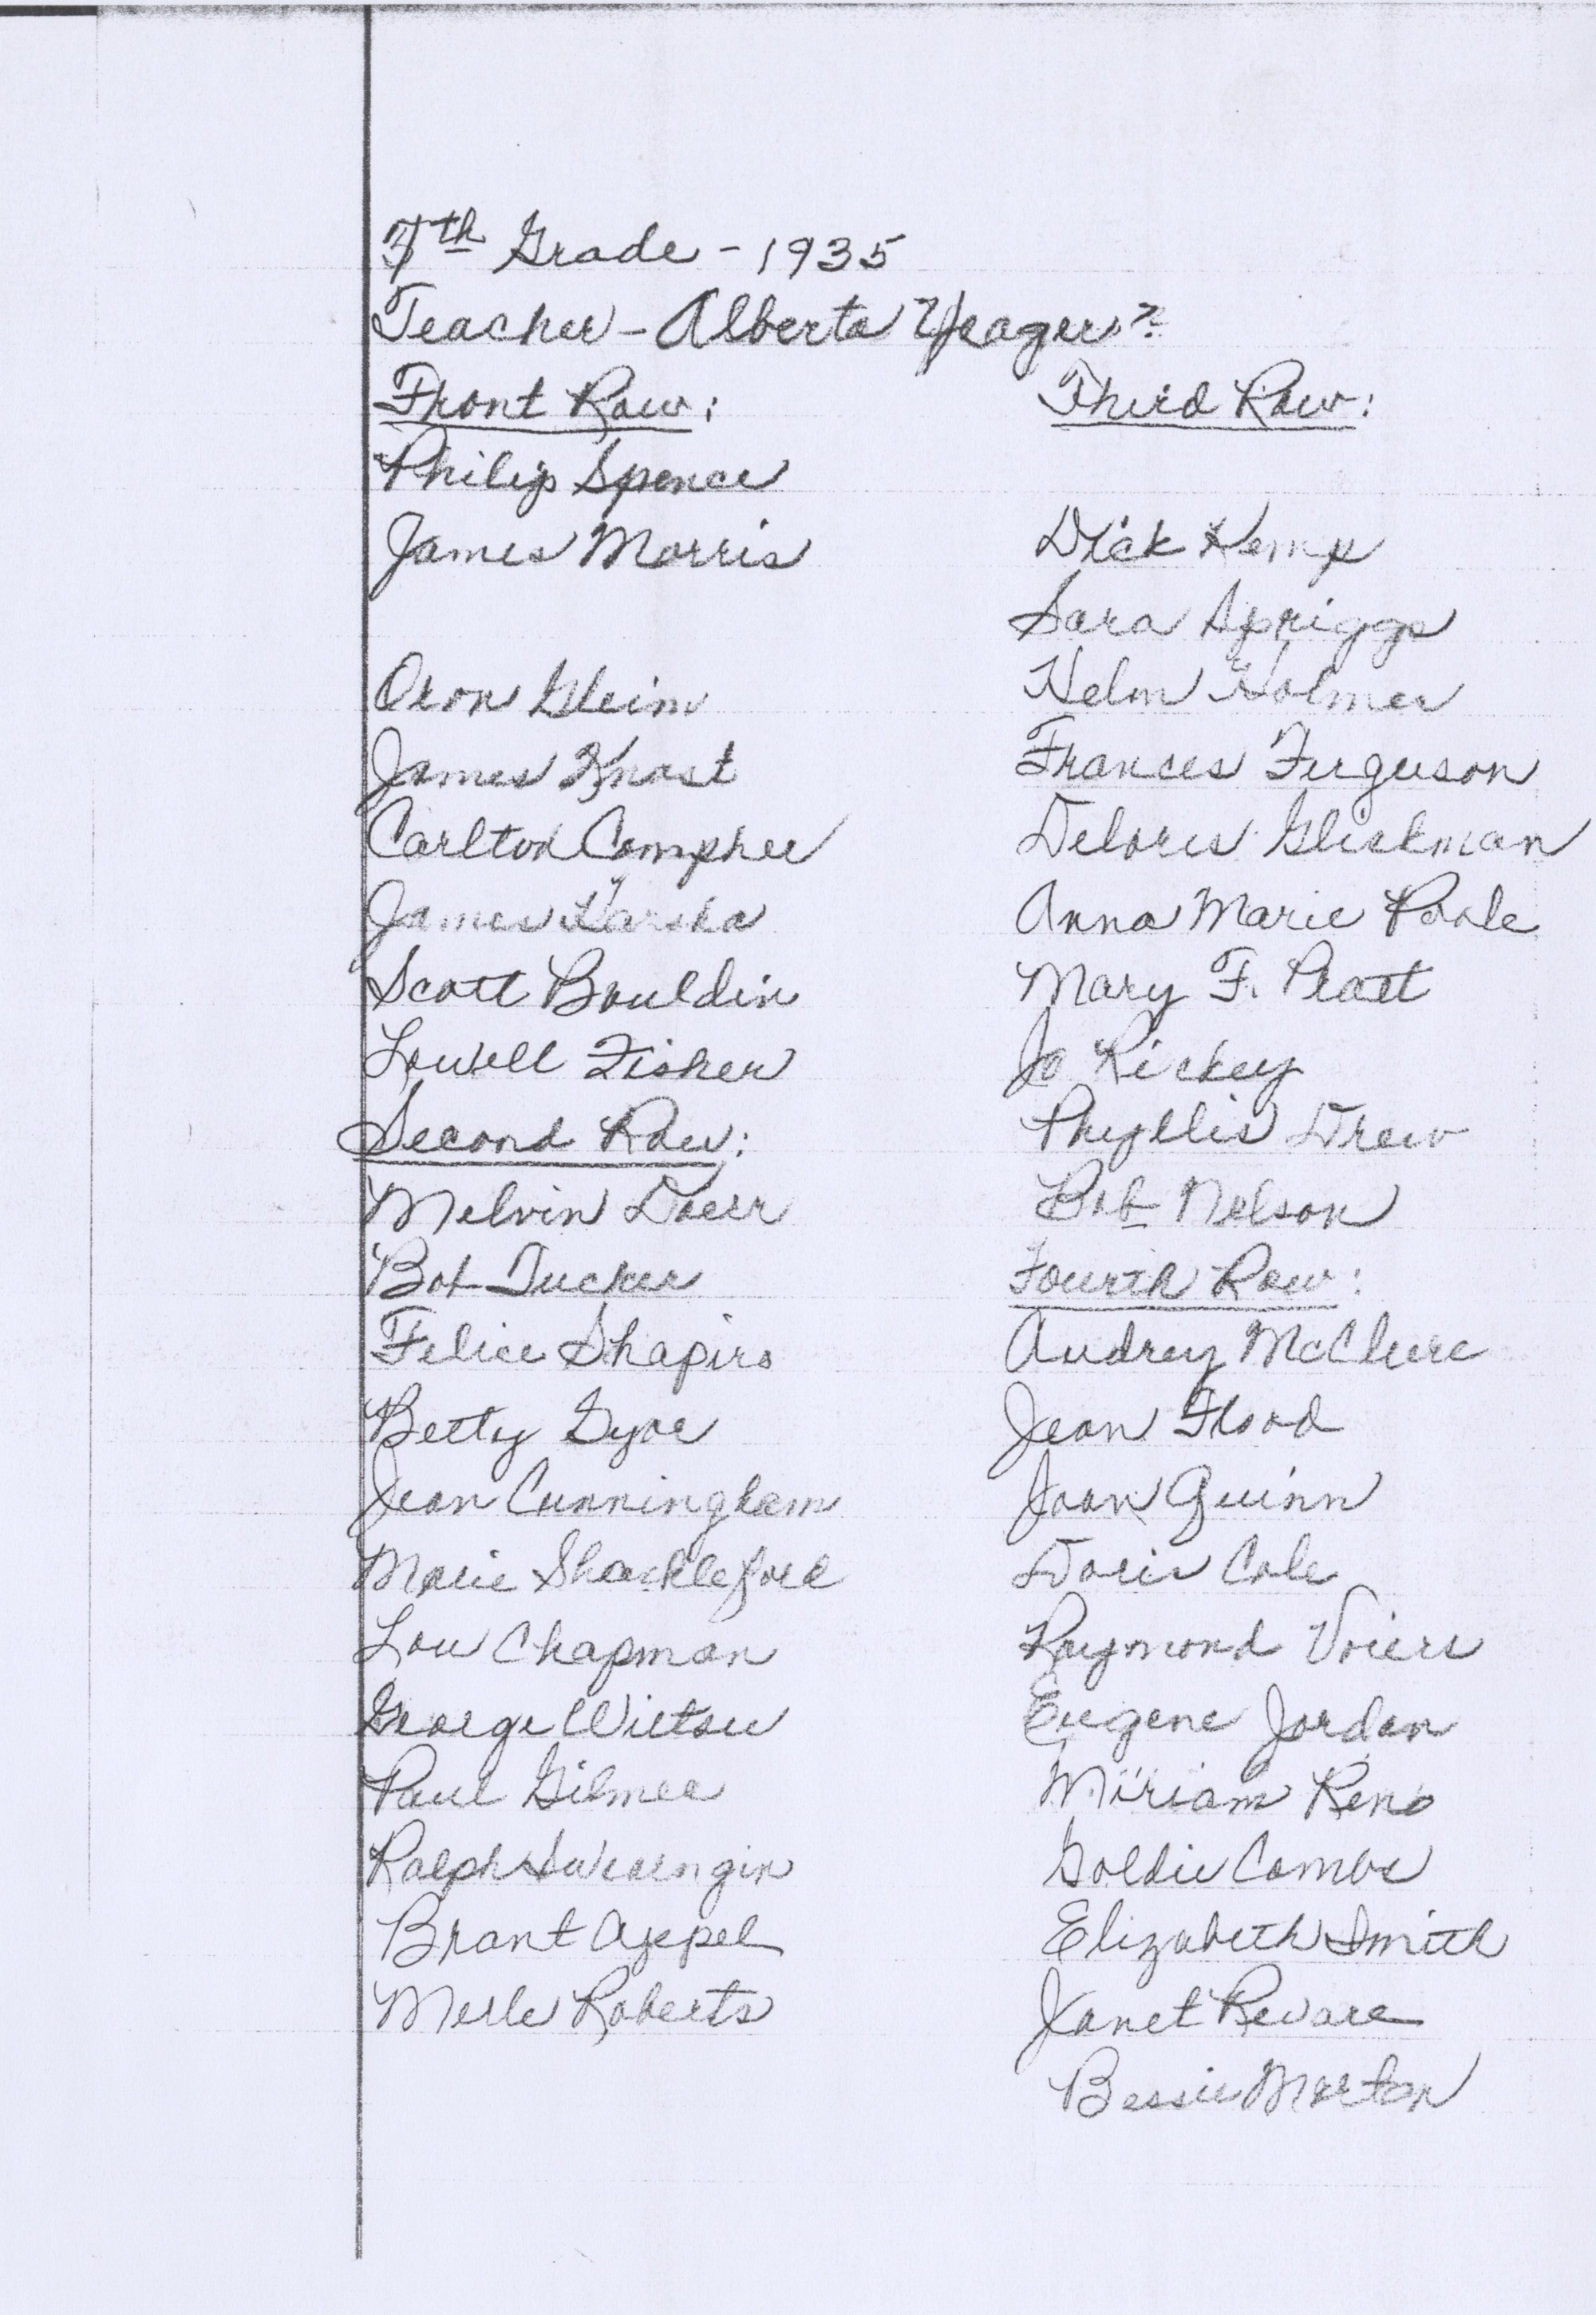 7th Grade - 1935
Teacher - Alberta Yeager?
Front Row:
Philip Spence
James Morris
Oron Gleim
James Knost
Carlton Compher
James
Scott Bouldin
Lowell Fisher
Second Row:
Melvin Doerr
Bob Tucker
Felice Shapiro
Betty
Jean Cunningham
Marie Shackleford
Lou Chapman
George
Paul Gilmer
Ralph Swearngin
Brant Appel
Merle Roberts
Third Row:
Dick Kemp
Sara Spriggs
Helen Holmes
Frances Ferguson
Delores Glickman
Anna Marie Poole
Mary F. Pratt
Jo Rickey
Phyllis Drew
Bob Nelson
Fourth Row:
Audrey McClure
Jean Flood
Joan Quinn
Doris Cole
Raymond Voiers
Eugene Jordan
Miriam Reno
Goldie Combs
Elizabeth Smith
Janet Revare
Bessie Morton